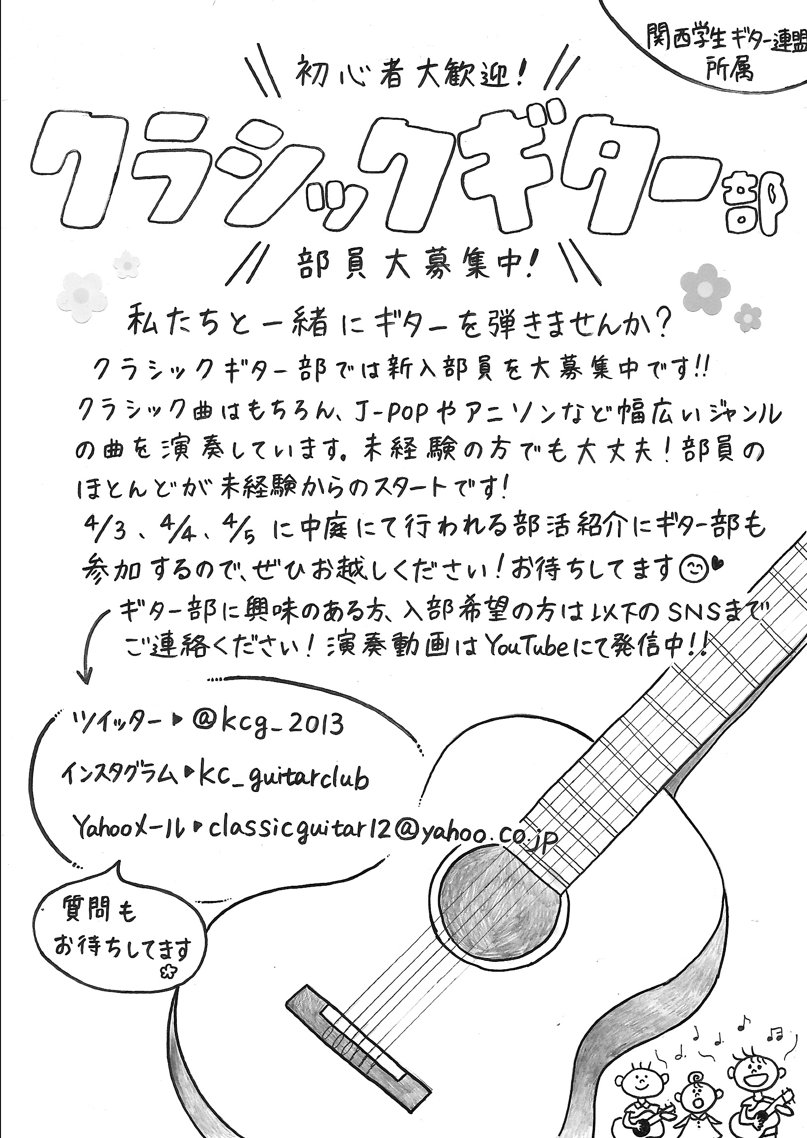 関西学生ギター連盟
所属
初心者大歓迎!
クラシックギター部
部員大募集中!
私たちと一緒にギターを弾きませんか?
クラシックギター部では新入部員を大募集中です!!
クラシック曲はもちろん、J-POPやアニソンなど幅広いジャンル
の曲を演奏しています。未経験の方でも大丈夫!部員の
ほとんどが未経験からのスタートです!
4/3、4/4、4/5 に中庭にて行われる部活紹介にギター部も
参加するので、ぜひお越しください!お待ちしてます
ギター部に興味のある方、入部希望の方は以下のSNSまで
ご連絡ください!演奏動画はYouTubeにて発信中!!
ツイッター▶@kcg_2013
インスタグラム▶kc_guitarclub
Yahooメール▶classicguitar12@yahoo.co.jp
質問も
お待ちしてます